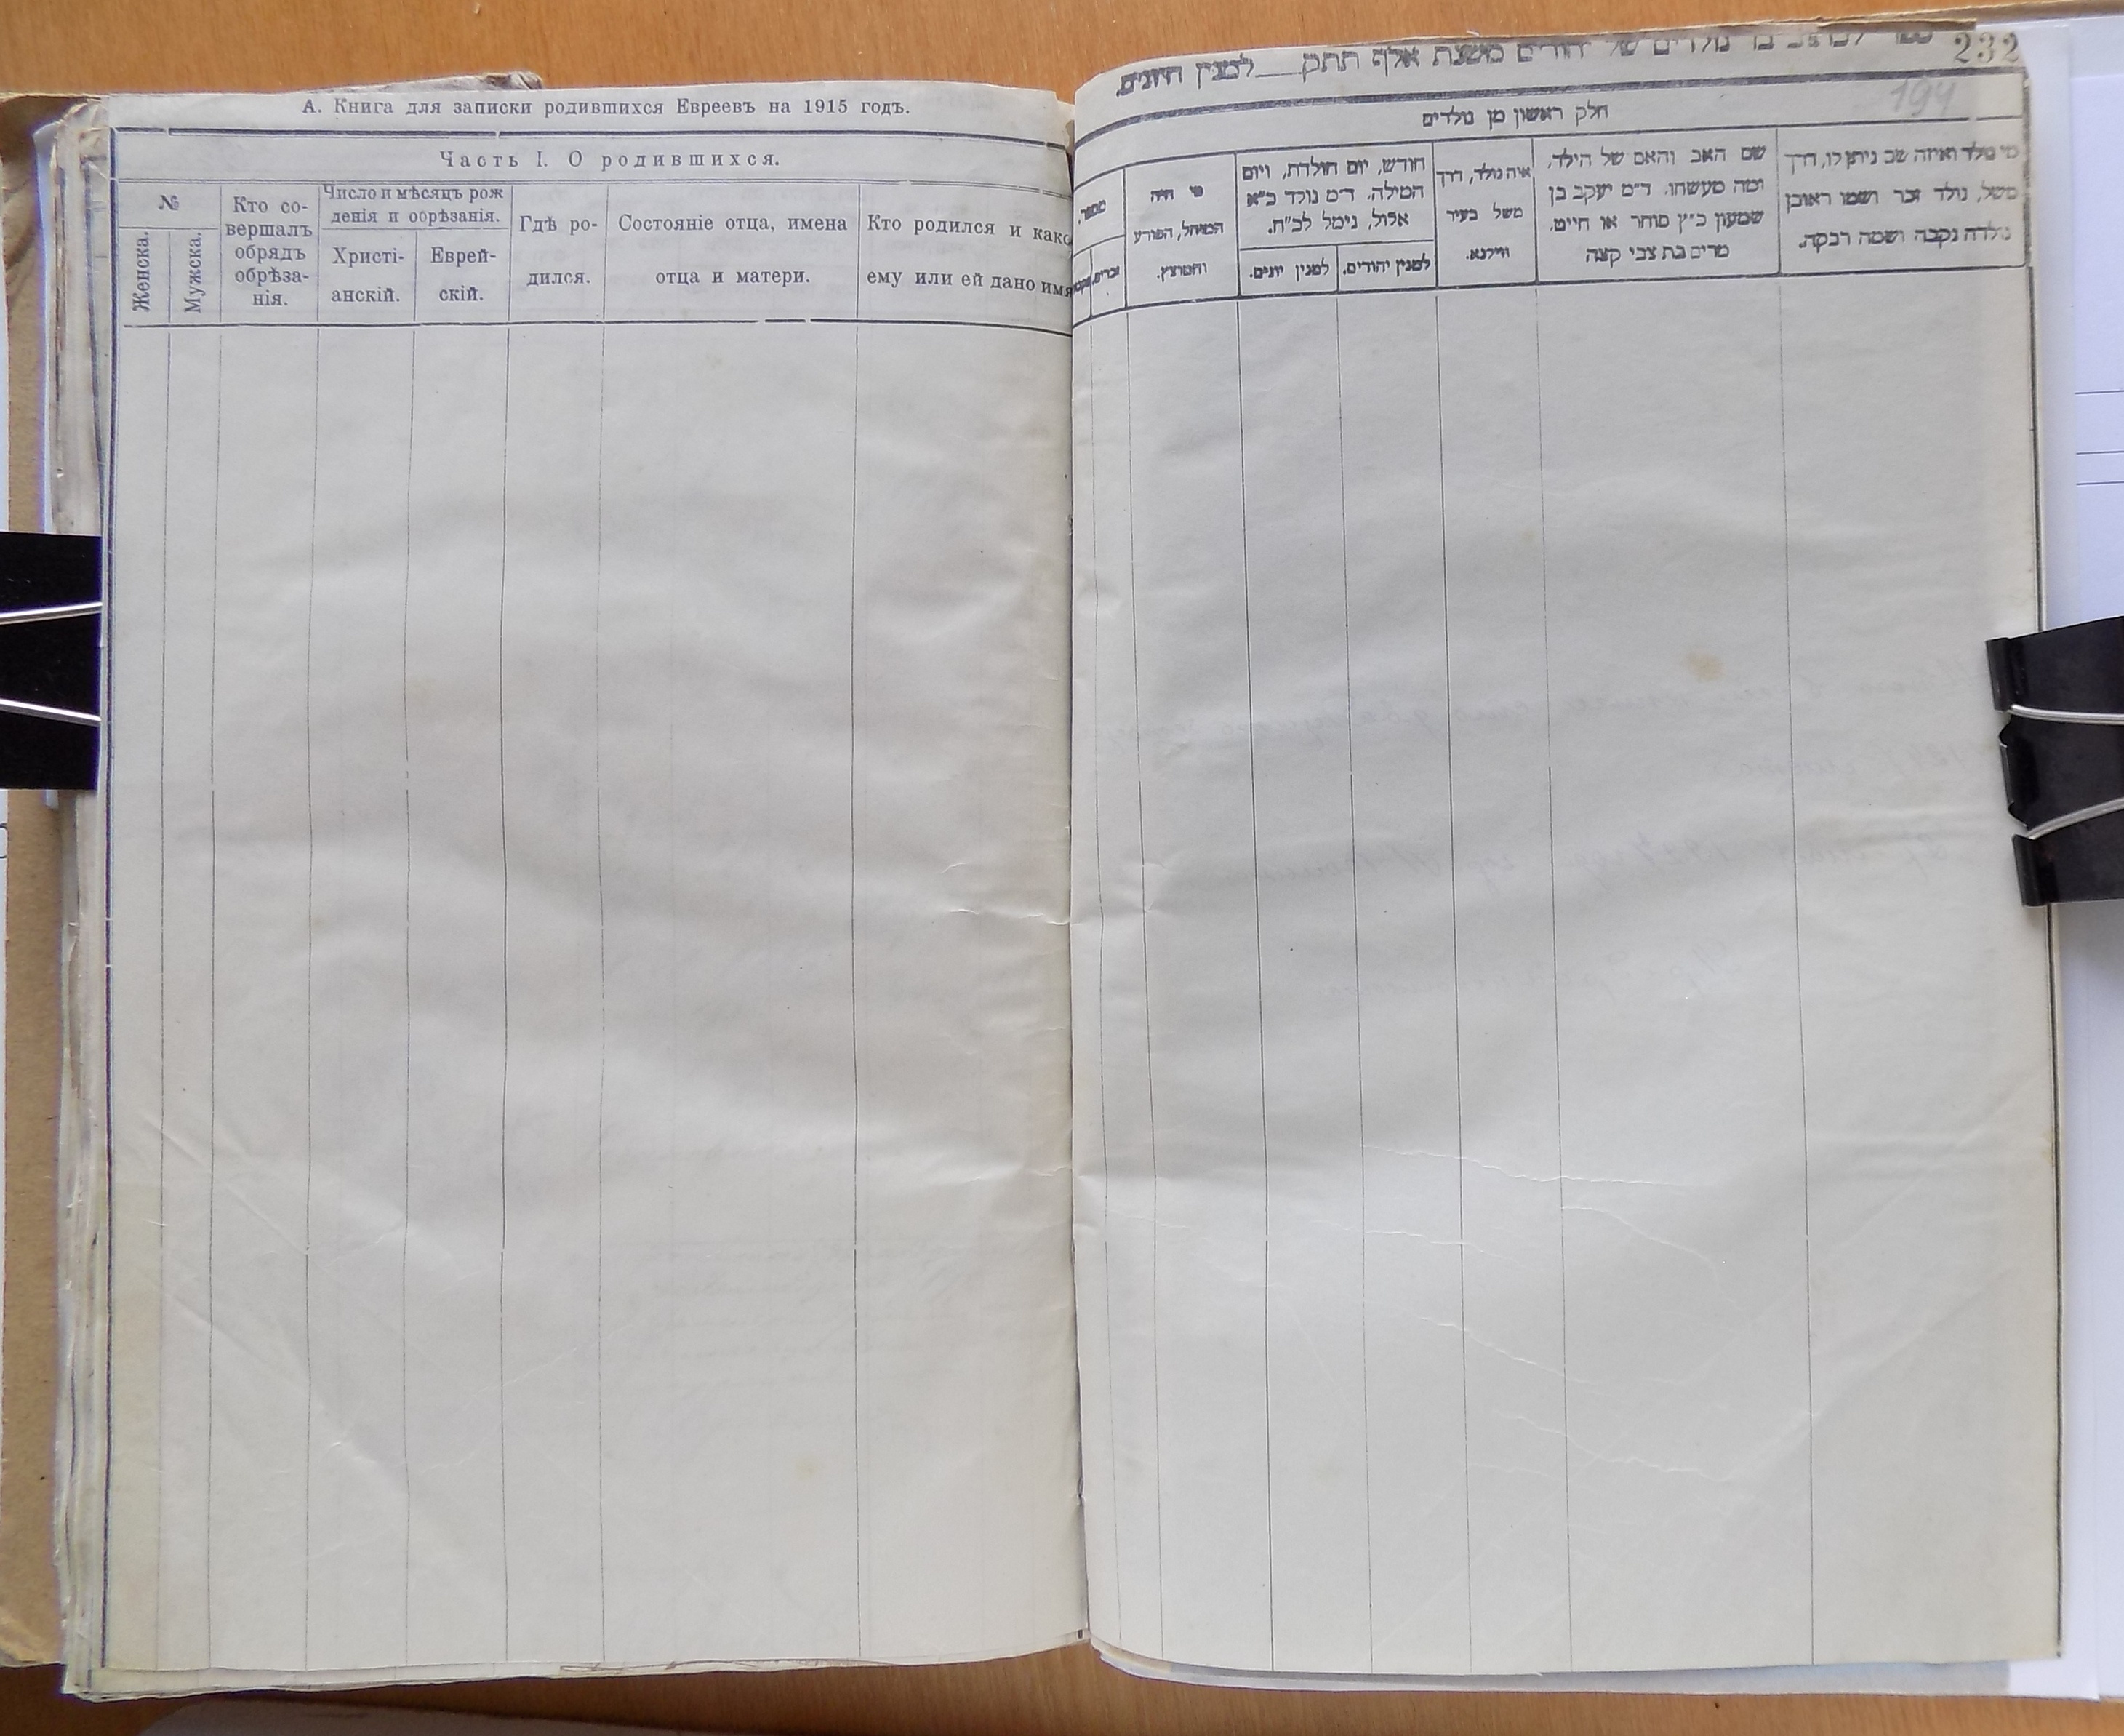 А. Книга для записки родившихся Евреевъ на 1915 годъ.
Часть I. О родившихся.
№
Женска.
Мужска.
Кто со-
вершалъ
обрядъ
обрѣза-
нія.
Число и мѣсяцъ рож
денія и обрѣзанія.
Христі-
анскій.
Еврей-
скій.
Гдѣ ро-
дился.
Состояніе отца, имена
отца и матери.
Кто родился и како
ему или ей дано имя
232
194
של יהודים משנת אלף תתק למנין היונים.
חלק ראשון מן נולדים
מי נולד ואיזה שב ניתן לו, דרך
משל, נולד זכר ושמו ראובן
נולדה נקבה ושמה רבקה.
שם האב והאם של הילד,
ומה מעשהו. ד״מ יעקב בן
שמעון כ״ץ סוחר או חייט,
מרים בת צבי קצה
איה נולד, דרך
משל בעיר
ווילנא.
חודש, יום הולדת, ויום
המילה. ד״מ נולד כ״א
אלול, נימל לכ״ח.
למנין יהודים.
למנין יונים.
מי היה
המוהל, הפורע
והמוצץ.
מספר.
זכרים.